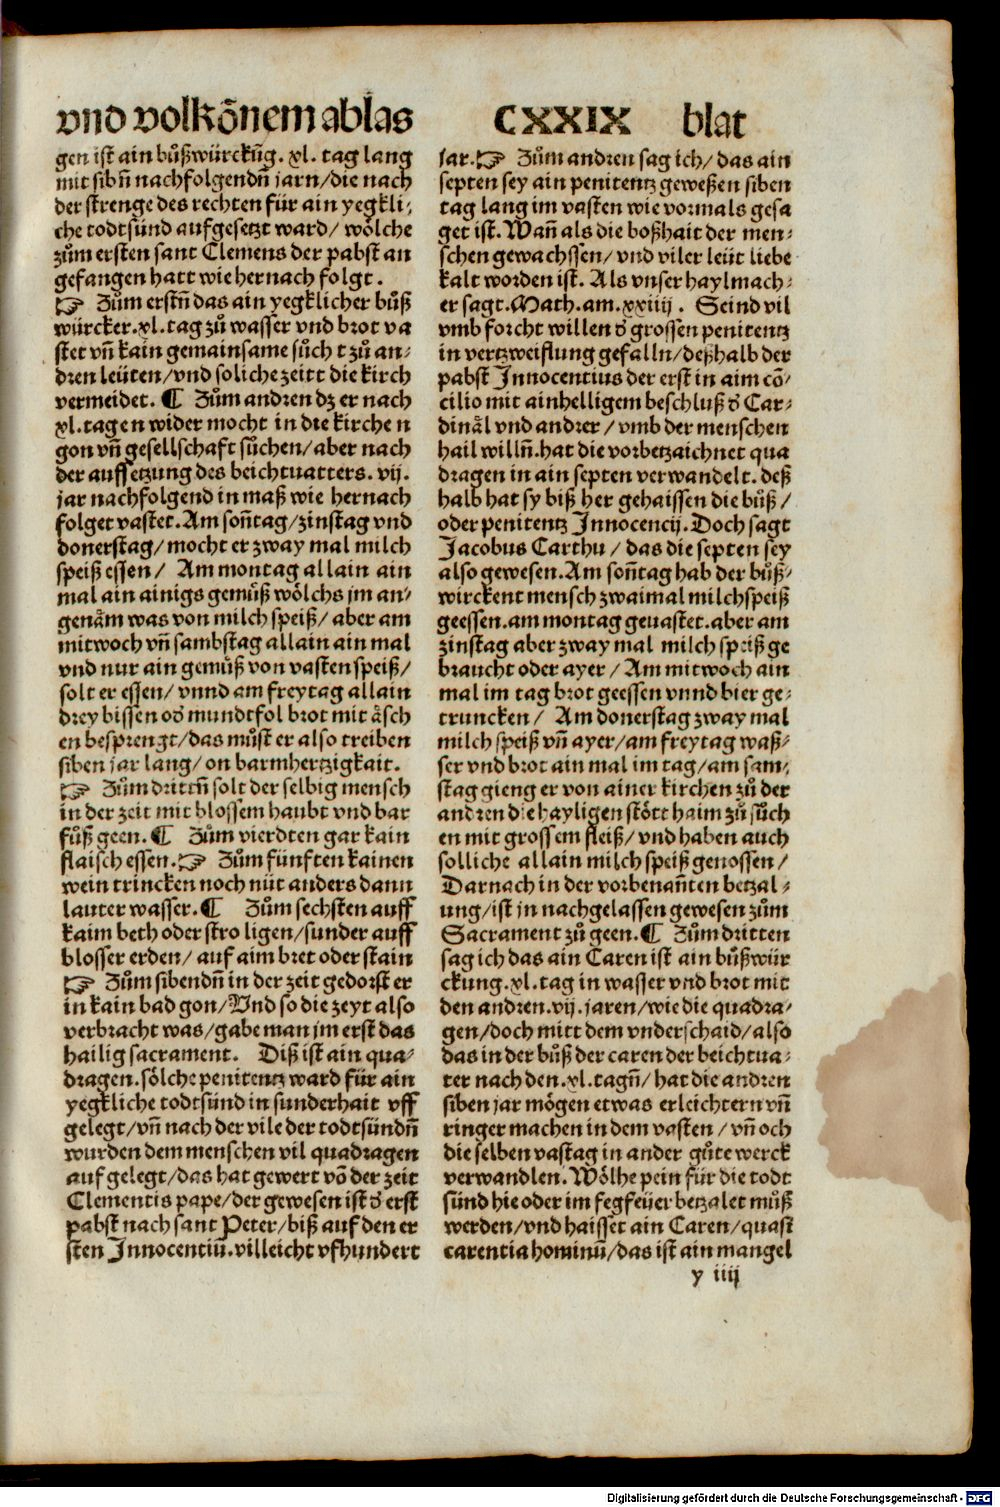 vnd volkõnem ablas CXXIX blat
gen ist ain bůßwürckũg. xl. tag lang
mit sibñ nachfolgendñ jarn/die nach
der strenge des rechten für ain yegkli⸗
che todtsünd aufgesetzt ward/ wölche
zům ersten sant Clemens der pabst an
gefangen hatt wie hernach folgt.
☞ Zům erstñ das ain yegklicher bůß
würcker. xl. tag zů wasser vnd brot va
stet vñ kain gemainsame sůcht zů an⸗
dren leüten/vnd soliche zeitt die kirch
vermeidet. ¶ Zům andren dz er nach
xl. tagen wider mocht in die kirchen
gon vñ gesellschaft sůchen/aber nach
der auffsetzung des beichtuatters. vij.
jar nachfolgend in maß wie hernach
folget vastet. Am soñtag/zinstag vnd
donerstag/mocht er zway mal milch
speiß essen/ Am montag allain ain
mal ain ainigs gemůß wölchs im an⸗
genäm was von milch speiß/ aber am
mitwoch vñ sambstag allain ain mal
vnd nur ain gemůß von vastenspeiß/
solt er essen/ vnnd am freytag allain
drey bissen oð mundtfol brot mit äsch
en besprengt/das můst er also treiben
siben jar lang/on barmhertzigkait.
☞ Zům drittñ solt der selbig mensch
in der zeit mit blossem haubt vnd bar
fůß geen. ¶ Zům vierdten gar kain
flaisch essen. ☞ Zům fünften kainen
wein trincken noch nüt anders dann
lauter wasser. ¶ Zům sechsten auff
kaim beth oder stro ligen/sunder auff
blosser erden/ auf aim bret oder stain
☞ Zům sibendñ in der zeit gedorst er
in kain bad gon/Vnd so die zeyt also
verbracht was/gabe man jm erst das
hailig sacrament. Diß ist ain qua⸗
dragen. sölche penitentz ward für ain
yegkliche todtsünd in sunderhait vff
gelegt/vñ nach der vile der todtsündñ
wurden dem menschen vil quadragen
auf gelegt/das hat gewert võ der zeit
Clementis pape/der gewesen ist ð erst
pabst nach sant Peter/biß auf den er
sten Innocentiũ. villeicht vfhundert
jar. ☞ Zům andren sag ich/ das ain
septen sey ain penitentz geweßen siben
tag lang im vasten wie vormals gesa
get ist. Wañ als die boßhait der men⸗
schen gewachssen/ vnd viler leüt liebe
kalt worden ist. Als vnser haylmach⸗
er sagt. Math. am. xxiiij. Seind vil
vmb forcht willen ð grossen penitentz
in vertzweiflung gefalln/deßhalb der
pabst Innocentius der erst in aim cõ⸗
cilio mit ainhelligem beschluß ð Car⸗
dinäl vnd andrer/ vmb der menschen
hail willñ. hat die vorbetzaichnet qua
dragen in ain septen verwandelt. deß
halb hat sy biß her gehaissen die bůß/
oder penitentz Innocencij. Doch sagt
Jacobus Carthu/ das die septen sey
also gewesen. Am soñtag hab der bůß⸗
wirckent mensch zwaimal milchspeiß
geessen. am montag geuastet. aber am
zinstag aber zway mal milch speiß ge
braucht oder ayer/ Am mitwoch ain
mal im tag brot geessen vnnd bier ge⸗
truncken/ Am donerstag zway mal
milch speiß vñ ayer/am freytag waß⸗
ser vnd brot ain mal im tag/am sam⸗
stag gieng er von ainer kirchen zů der
andren die hayligen stött haim zů sůch
en mit grossem fleiß/ vnd haben auch
solliche allain milch speiß genossen/
Darnach in der vorbenañten betzal⸗
ung/ist jn nachgelassen gewesen zům
Sacrament zů geen. ¶ Zům dritten
sag ich das ain Caren ist ain bůßwür
ckung. xl. tag in wasser vnd brot mit
den andren. vij. jaren/wie die quadra⸗
gen/doch mitt dem vnderschaid/also
das in der bůß der caren der beichtua⸗
ter nach den. xl. tagñ/ hat die andren
siben jar mögen etwas erleichtern vñ
ringer machen in dem vasten/ vñ och
die selben vastag in ander gůte werck
verwandlen. Wölhe pein für die todt
sünd hie oder im fegfeüer betzalet můß
werden/vnd haisset ain Caren/quasi
carentia hominũ/das ist ain mangel
y iiij
Digitalisierung gefördert durch die Deutsche Forschungsgemeinschaft - DFG